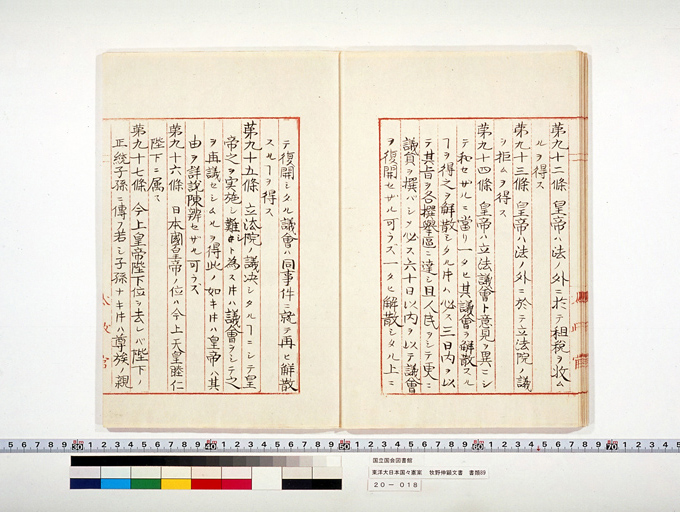 第九十二條 皇帝ハ法ノ外ニ於テ租税ヲ收ム
ルヲ得ス
第九十三條 皇帝ハ法ノ外ニ於テ立法院ノ議
ヲ拒ムヲ得ス
第九十四條 皇帝ハ立法議會ト意見ヲ異ニシ
テ和セサルニ當リ一タヒ其議會ヲ解散スル
ヿヲ得之ヲ解散シタル片ハ必ス三日内ヲ以
テ其旨ヲ各撰擧區ニ達シ且人民ヲシテ更ニ
議員ヲ撰バシメ必ス六十日以内ヲ以テ議會
ヲ復開セザル可ラズ一タヒ解散シタル上ニ
テ復開シタル議會ハ同事件ニ就テ再ヒ解散
スルヿヲ得ス
第九十五條 立法院ノ議决シタルヿニシテ皇
帝之ヲ実施シ難シト為ス片ハ議會ヲシテ之
ヲ再議セシムルヲ得此ノ如キ片ハ皇帝ハ其
由ヲ詳説陳辨セザル可ラズ
第九十六條 日本國皇帝ノ位ハ今上天皇睦仁
陛下ニ属ス
第九十七條 今上皇帝陛下位ヲ去レバ陛下ノ
正統子孫ニ傳フ若シ子孫ナキ片ハ尊族ノ親
太政官
国立国会図書館
東洋大日本国々憲案 牧野伸顕文書 書類89
20-018